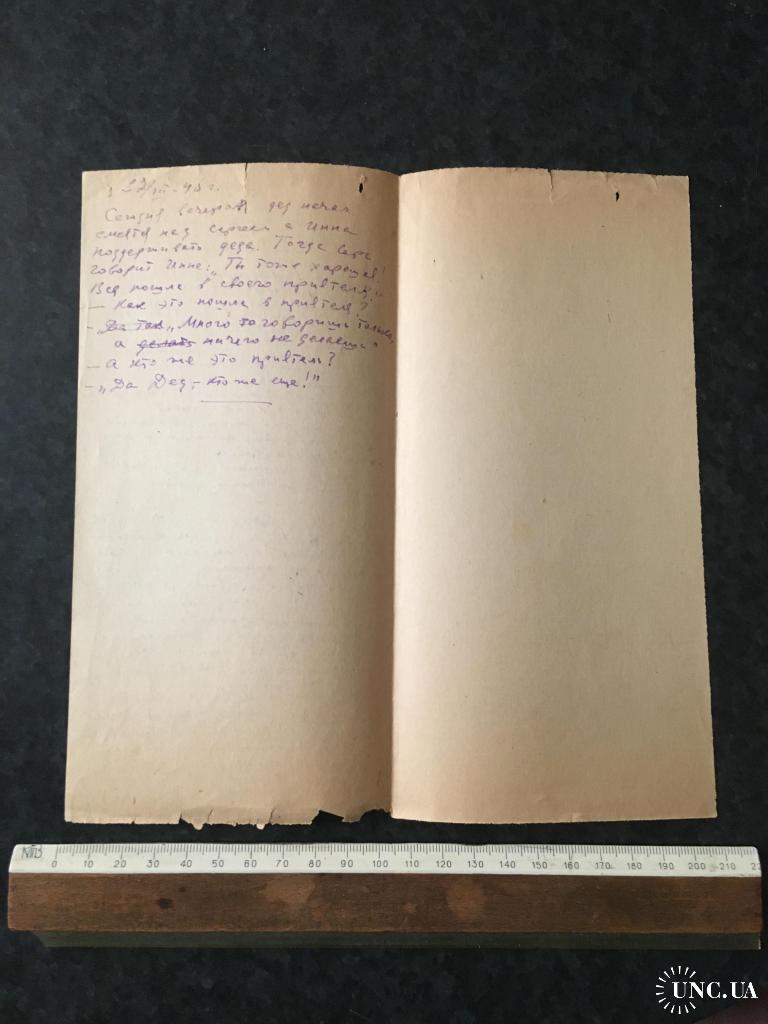 27/III-43 г.
Сегодня вечером дед начал
смеятся над Сергеем а Инна
поддерживать деда. Тогда
говорит Инне: „Ты тоже хорошая!
Вся пошла в своего приятеля!"
— Как это пошла в приятеля?
— Да так „Много то говоришь только,
а делать ничего не делаешь"
— А кто же это приятель?
— „Да Дед, – кто же еще!"
0 10 20 30 40 50 60 70 80 90 100 110 120 130 140 150 160 170 180 190 200 210
UNC.UA